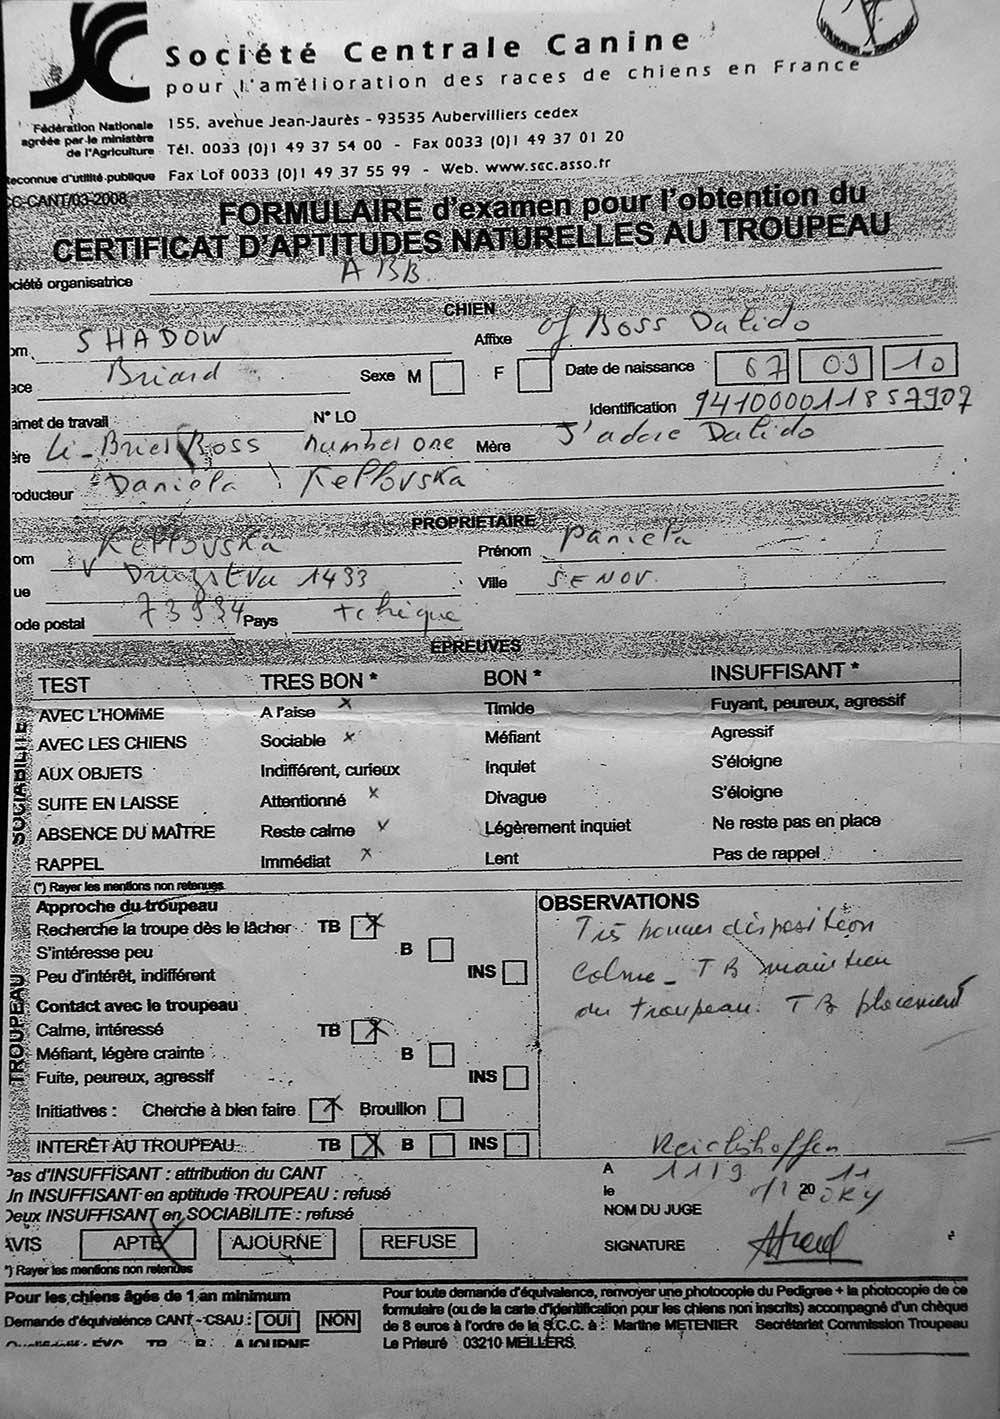 Société Centrale Canine
pour l'amélioration des races de chiens en France
Fédération Nationale
agréée par le ministère
de l'Agriculture
155, avenue Jean-Jaurès - 93535 Aubervilliers cedex
Tél. 0033 (0)1 49 37 54 00 - Fax 0033 (0)1 49 37 01 20
econnue d'utilité publique Fax Lof 0033 (0)1 49 37 55 99 - Web. www.scc.asso.fr
C-CANT/03-2008
FORMULAIRE d'examen pour l'obtention du
CERTIFICAT D'APTITUDES NATURELLES AU TROUPEAU
ciété organisatrice ABB
CHIEN
om SHADOW Affixe of Boss Dalido
ace Briard Sexe M F Date de naissance 67 09 10
arnet de travail N° LO Identification 941000011857907
ère Li-Brier Ross number one Mère J'adore Dalido
oducteur Daniela Keltovska
PROPRIETAIRE
om Keltovska Prénom Daniela
ue Druzstva 1433 Ville SENOV
ode postal 73934 Pays tchèque
EPREUVES
SOCIABILITE
TEST TRES BON * BON * INSUFFISANT *
AVEC L'HOMME A l'aise x Timide Fuyant, peureux, agressif
AVEC LES CHIENS Sociable x Méfiant Agressif
AUX OBJETS Indifférent, curieux Inquiet S'éloigne
SUITE EN LAISSE Attentionné x Divague S'éloigne
ABSENCE DU MAÎTRE Reste calme x Légèrement inquiet Ne reste pas en place
RAPPEL Immédiat x Lent Pas de rappel
(*) Rayer les mentions non retenues
TROUPEAU
Approche du troupeau
Recherche la troupe dès le lâcher TB x
S'intéresse peu B
Peu d'intérêt, indifférent INS
Contact avec le troupeau
Calme, intéressé TB x
Méfiant, légère crainte B
Fuite, peureux, agressif INS
Initiatives : Cherche à bien faire x Brouillon
INTERÊT AU TROUPEAU TB x B INS
OBSERVATIONS
Très bonnes disposition
calme - TB maintien
du troupeau. TB placement
Pas d'INSUFFISANT : attribution du CANT
Un INSUFFISANT en aptitude TROUPEAU : refusé
Deux INSUFFISANT en SOCIABILITE : refusé
AVIS APTE AJOURNE REFUSE
*) Rayer les mentions non retenues
A Reichshoffen
le 11/9 20 11
NOM DU JUGE
SIGNATURE
Pour les chiens âgés de 1 an minimum
Demande d'équivalence CANT - CSAU : OUI NON
Pour toute demande d'équivalence, renvoyer une photocopie du Pedigree + la photocopie de ce
formulaire (ou de la carte d'identification pour les chiens non inscrits) accompagné d'un chèque
de 8 euros à l'ordre de la S.C.C. à : Martine METENIER Secrétariat Commission Troupeau
Le Prieuré 03210 MEILLERS